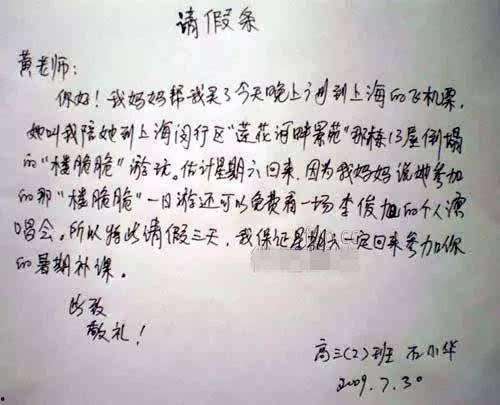 请假条
黄老师：
你好！我妈妈帮我买了今天晚上到上海的飞机票，
她叫我陪她到上海闵行区“莲花河畔景苑”那栋13层倒塌
的“楼脆脆”游玩。估计星期六回来，因为我妈妈说她参加
的那“楼脆脆”一日游还可以免费看一场李俊旭的个人演
唱会。所以特此请假三天，我保证星期六一定回来参加你
的暑期补课。
此致
敬礼！
高三(2)班 石小华
2009.7.30